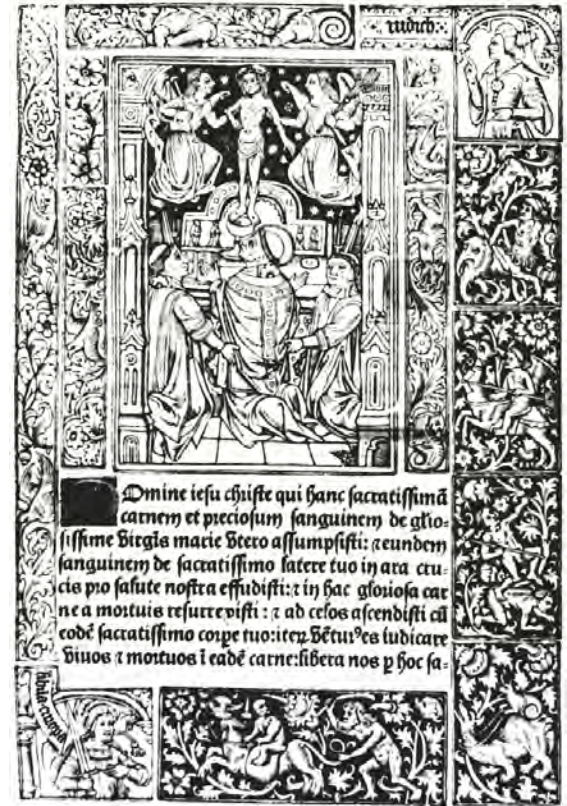 iudich
Domine iesu christe qui hanc sacratissimā
carnem et preciosum sanguinem de glio-
sissime Virgīs marie Vtero assumpsisti: ⁊ eundem
sanguinem de sacratissimo latere tuo in ara cru-
cis pro salute nostra effudisti: ⁊ in hac gloriosa car
ne a mortuis resurrexisti : ⁊ ad celos ascendisti cū
eodē sacratissimo corpe tuo: iteꝝ Vētur⁹ es iudicare
Viuos ⁊ mortuos ī eadē carne: libera nos ꝑ hoc sa-